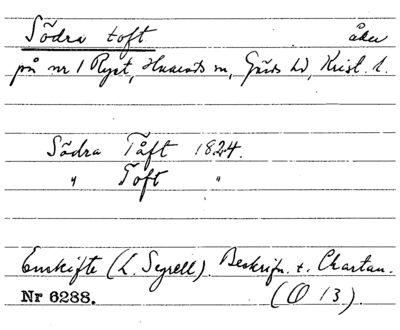 Södra toft åker
på nr 1 Rygt, m, Gärds hd, Krist. l.
Södra Tåft 1824.
" Toft "
Enskifte (L. Seyrell). Beskrifn. t. Chartan.
Nr 6288. (O 13).